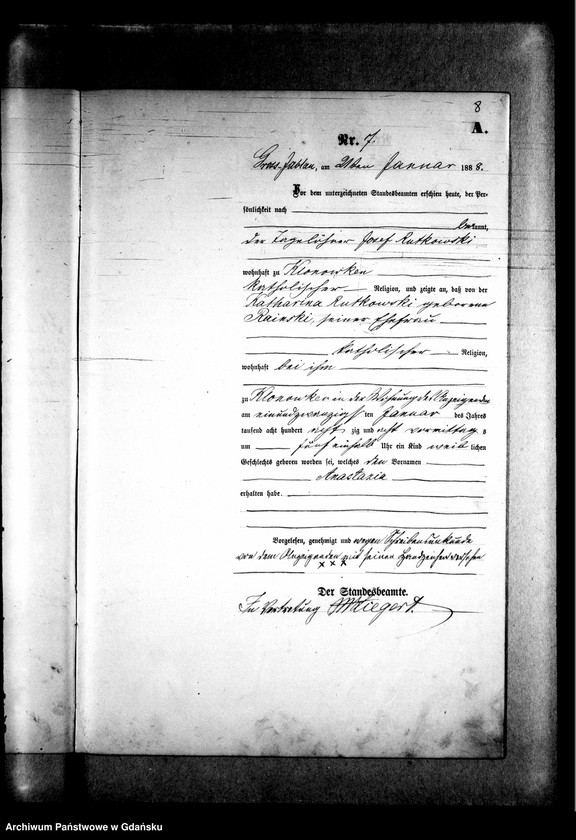 8
A.
Nr. 7.
Gross Jablau, am 21ten Januar 1888.
Vor dem unterzeichneten Standesbeamten erschien heute, der Per-
sönlichkeit nach
bekannt,
der Tagelöhner Josef Rutkowski
wohnhaft zu Klonowken
katholischer Religion, und zeigte an, daß von der
Katharina Rutkowski geborene
Rainski, seiner Ehefrau
katholischer Religion,
wohnhaft bei ihm
zu Klonowken in der Wohnung des Anzeigenden
am einundzwanzigsten Januar des Jahres
tausend acht hundert acht zig und acht vormittags
um fünf einhalb Uhr ein Kind weiblichen
Geschlechts geboren worden sei, welches den Vornamen
Anastazia
erhalten habe.
Vorgelesen, genehmigt und wegen Schreibensunkunde
von dem Anzeigenden mit seinen Handzeichen versehen
x x x
Der Standesbeamte.
In Vertretung
Archiwum Państwowe w Gdańsku